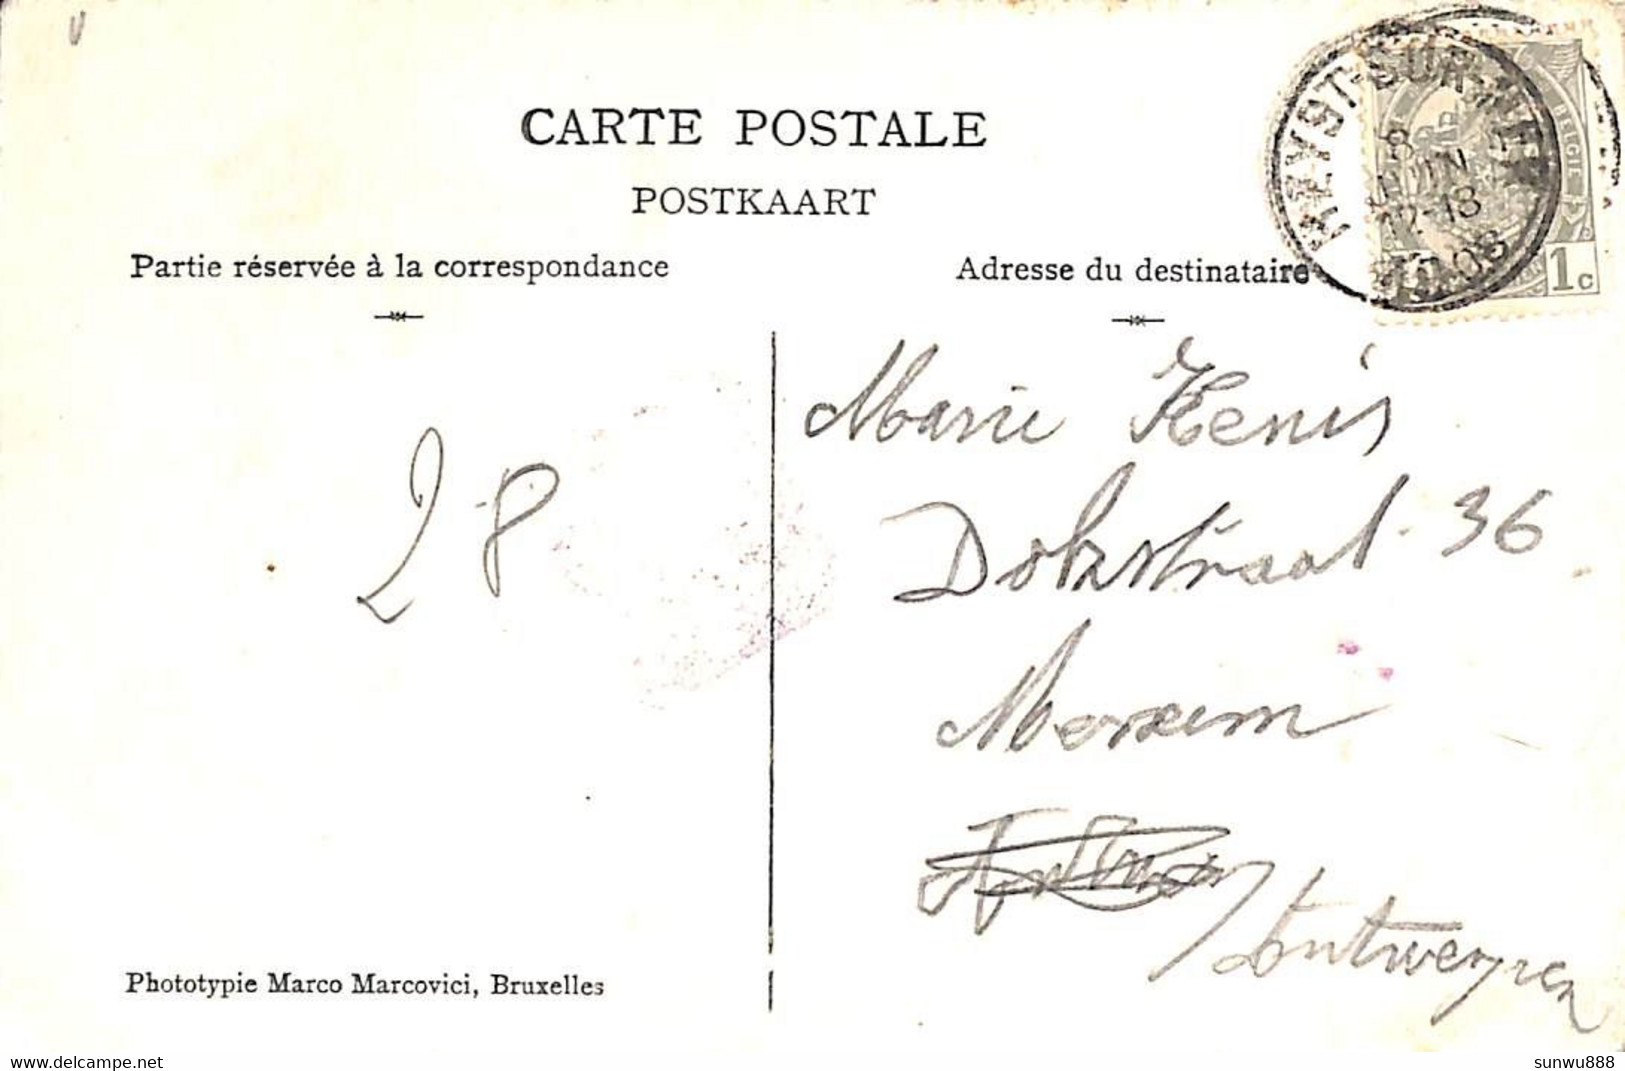 CARTE POSTALE
POSTKAART
Partie réservée à la correspondance
Adresse du destinataire
HEYST-SUR-MER
8
JUIN
17-18
1908
BELGIE
1c
Marie Kenis
Dokstraat 36
Merxem
Antwerpen
28
Phototypie Marco Marcovici, Bruxelles
delcampe.net
sunwu888